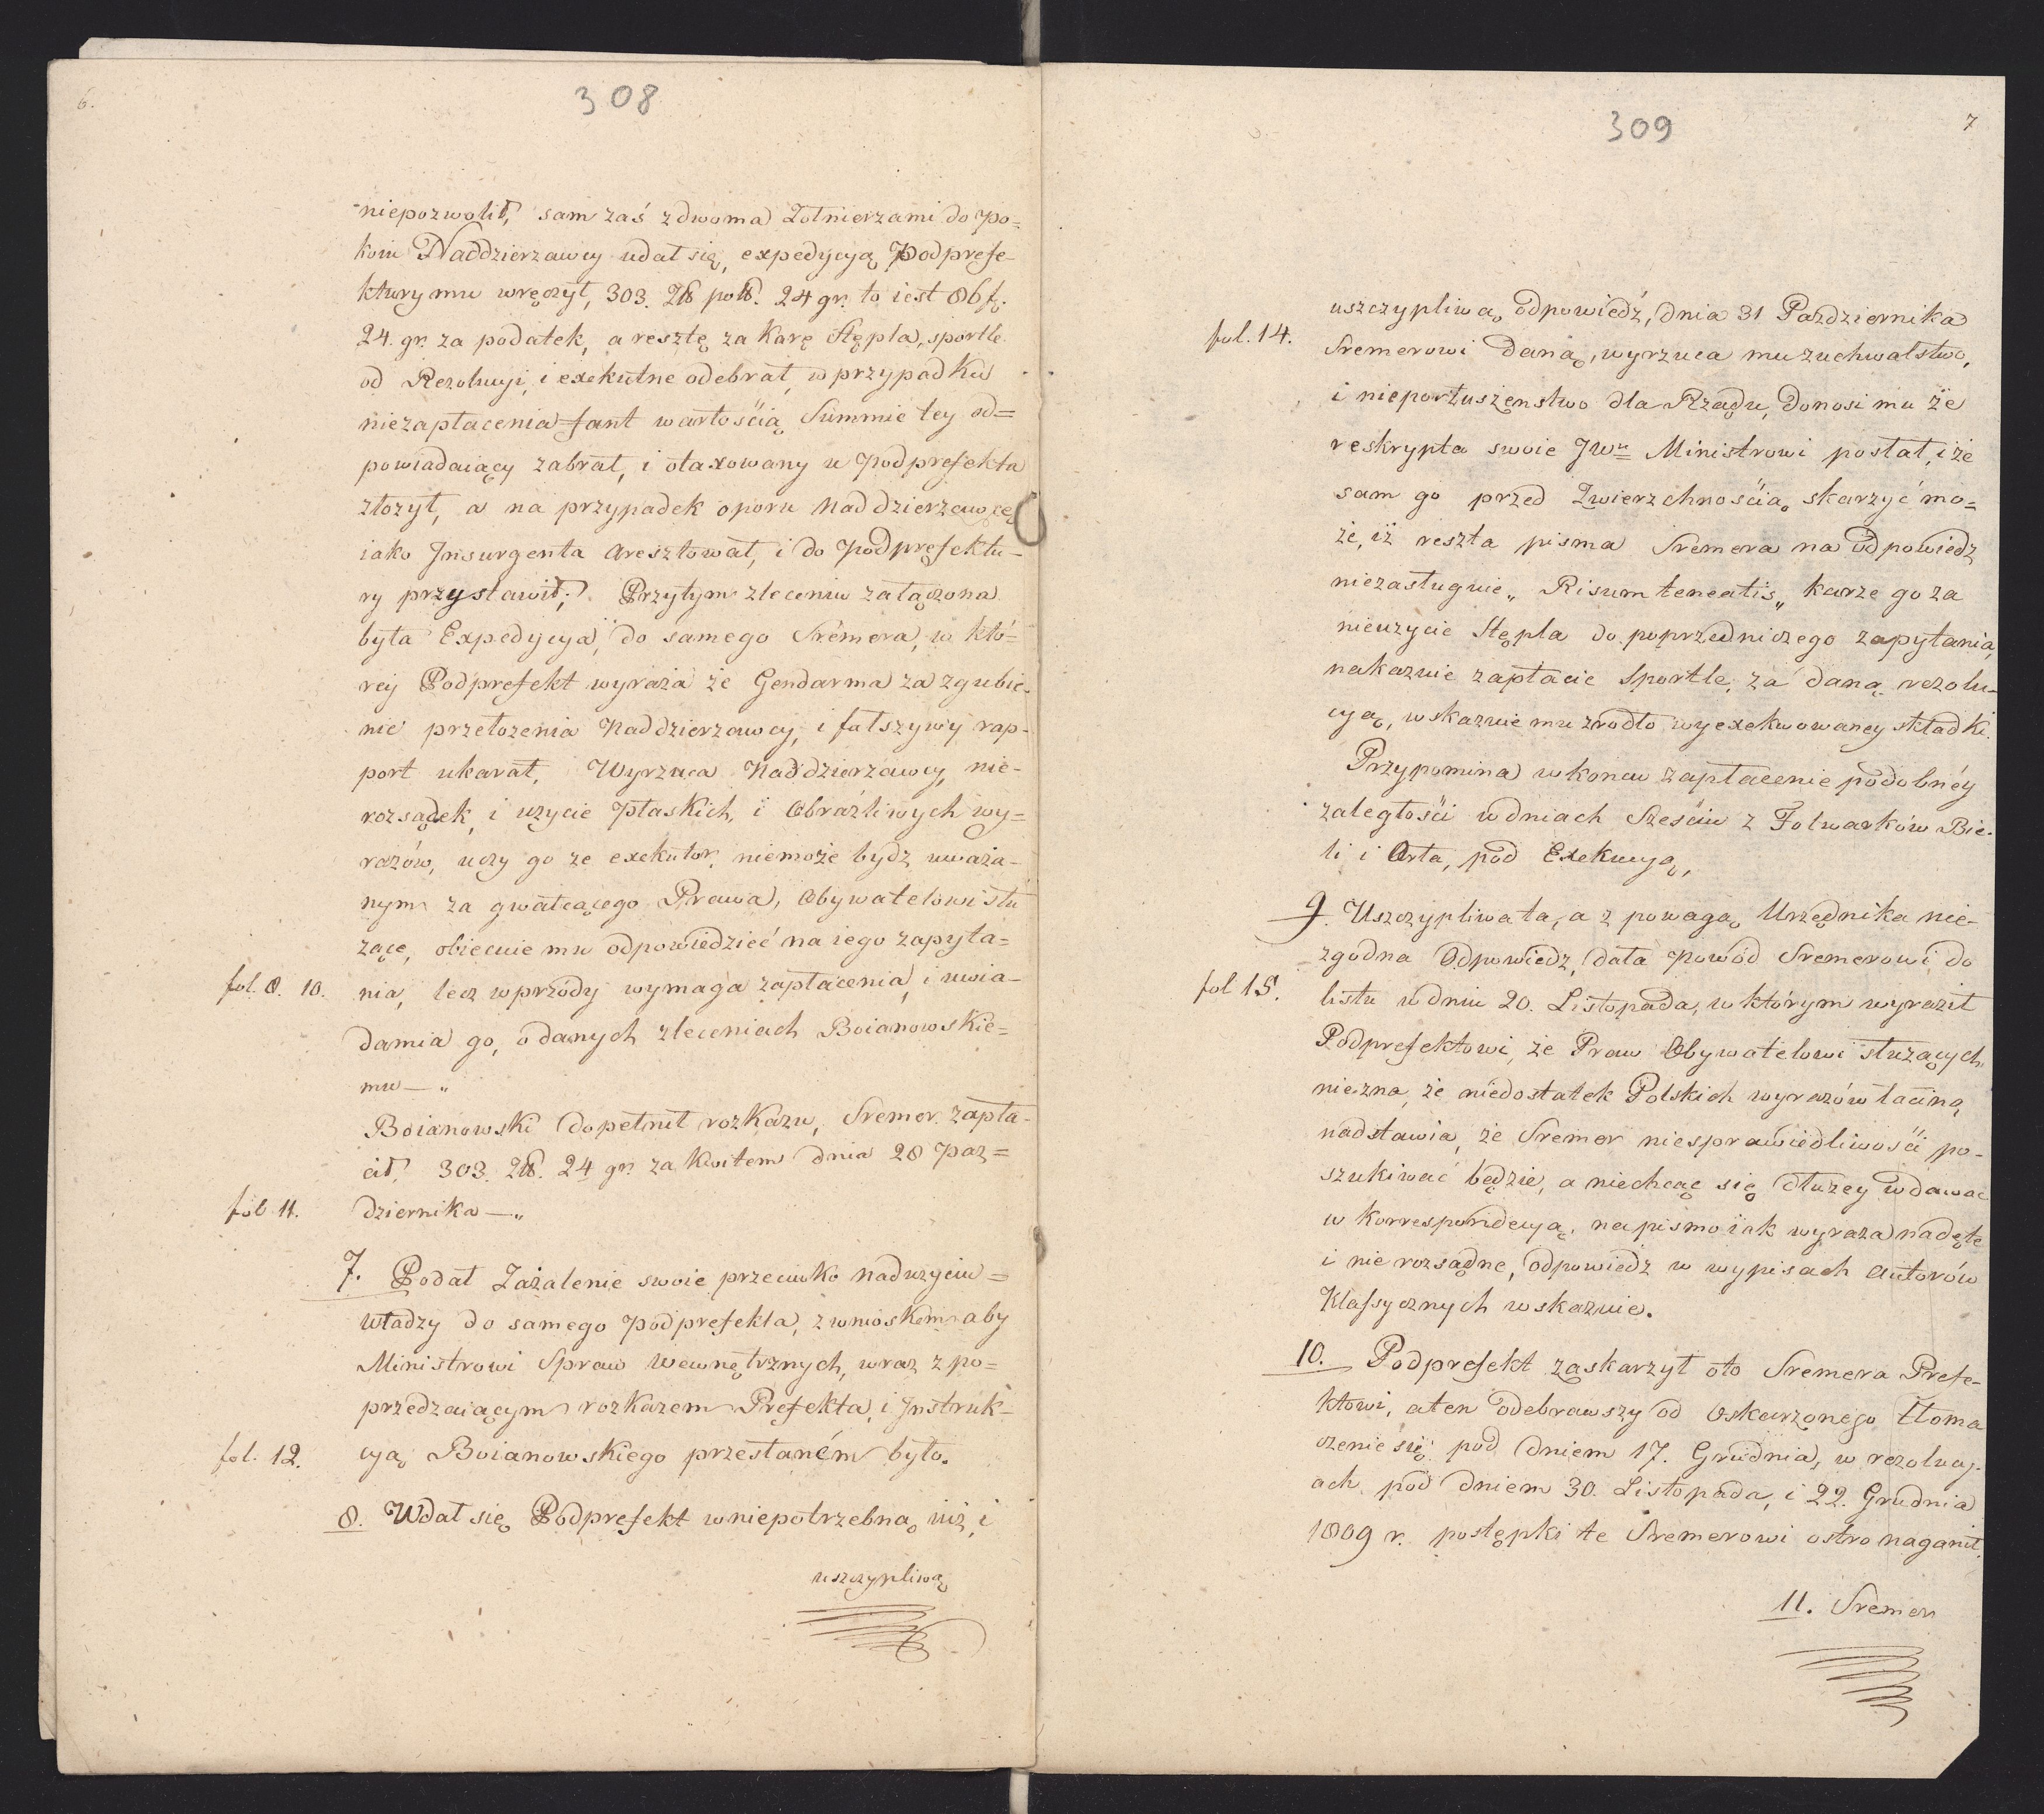 6.
308
niepozwolił, sam zaś z dwoma Żołnierzami do po=
koiu Naddzierzawcy udał się, expedycyą Podprefe-
ktury mu wręczył, 303. Zł pol. 24 gr. to iest 86 f.
24. gr. za podatek, a resztę za karę Stępla, sportle
od Rezolucyi, i exekutne odebrał, w przypadku
niezapłacenia fant wartością Summie tey od=
powiadaiący zabrał, i otaxowany u Podprefekta
złozył, a na przypadek oporu Naddzierzawcę
iako Insurgenta Aresztował, i do Podprefektu-
ry przystawił; Przytym zleceniu załączona
była Expedycya, do samego Sremera, w któ-
rey Podprefekt wyraża że Gendarma za zgubie-
nie przełozenia Naddzierzawcy, i fałszywy rap-
port ukarał, Wyrzuca Naddzierzawcy, nie-
rozsądek, i uzycie płaskich, i Obraźliwych wy=
razów, uczy go ze exekutor niemoże bydź uważa-
nym za gwałcącego Prawa, Obywatelowi słu
żące, obiecuie mu odpowiedzieć na iego zapyta=
fol. 8. 10. nia, lecz wprzódy wymaga zapłacenia, i uwia-
damia go, o danych zleceniach Boianowskie=
mu — „
Boianowski dopełnił rozkazu, Sremer zapła-
cił, 303. Zł. 24 gr. za kwitem dnia 28 Paz=
fol. 11. dziernika — „
7. Podał Zażalenie swoie przeciwko nadużyciu=
władzy do samego Podprefekta, z wnioskiem aby
Ministrowi Spraw Wewnętrznych, wraz z po=
przedzaiącym rozkazem Prefekta, i Instruk-
fol. 12. cyą Boianowskiego przesłaném było.
8. Wdał się Podprefekt w niepotrzebną iuż, i
uszczypliwą
309
7
uszczypliwą odpowiedź, dnia 31 Pazdziernika
fol. 14. Sremerowi daną, wyrzuca mu zuchwalstwo,
i nieposłuszenstwo dla Rządu, donosi mu że
reskrypta swoie JWu Ministrowi posłał, i że
sam go przed Zwierzchnością skarzyć mo=
że, iż reszta pisma Sremera na odpowiedz
niezasługuie „ Risum teneatis „ karze go za
nieuzycie Stępla do poprzedniczego zapytania,
nakazuie zapłacie Sportle, za daną rezolu-
cyą, wskazuie mu zrodło wyexekwowaney składki.
Przypomina w koncu zapłacenie podobnéy
zaległości w dniach Sześciu z Folwarków Bie-
li i Orta, pod Exekucyą,
9. Uszczypliwa ta, a z powagą Urzędnika nie-
zgodna Odpowiedz, dała powód Sremerowi, do
fol 15. listu w dniu 20. Listopada, w którym wyraził
Podprefektowi, że Praw Obywatelowi służących
niezna, że niedostatek Polskich wyrazów łaciną
nadstawia, że Sremer niesprawiedliwości po-
szukiwać będzie, a niechcąc się dłużey wdawac
w korrespondecyą, na pismo iak wyraza nadęte
i nie rozsądne, odpowiedz w wypisach Autorów
Klassycznych wskazuie.
10. Podprefekt zaskarzył oto Sremera Prefe-
ktowi, a ten odebrawszy od Oskarzonego tłoma
czenie się pod dniem 17. Grudnia, w rezolucy-
ach pod dniem 30. Listopada, i 22. Grudnia
1809 r. postępki te Sremerowi ostro naganił,
11. Sremer